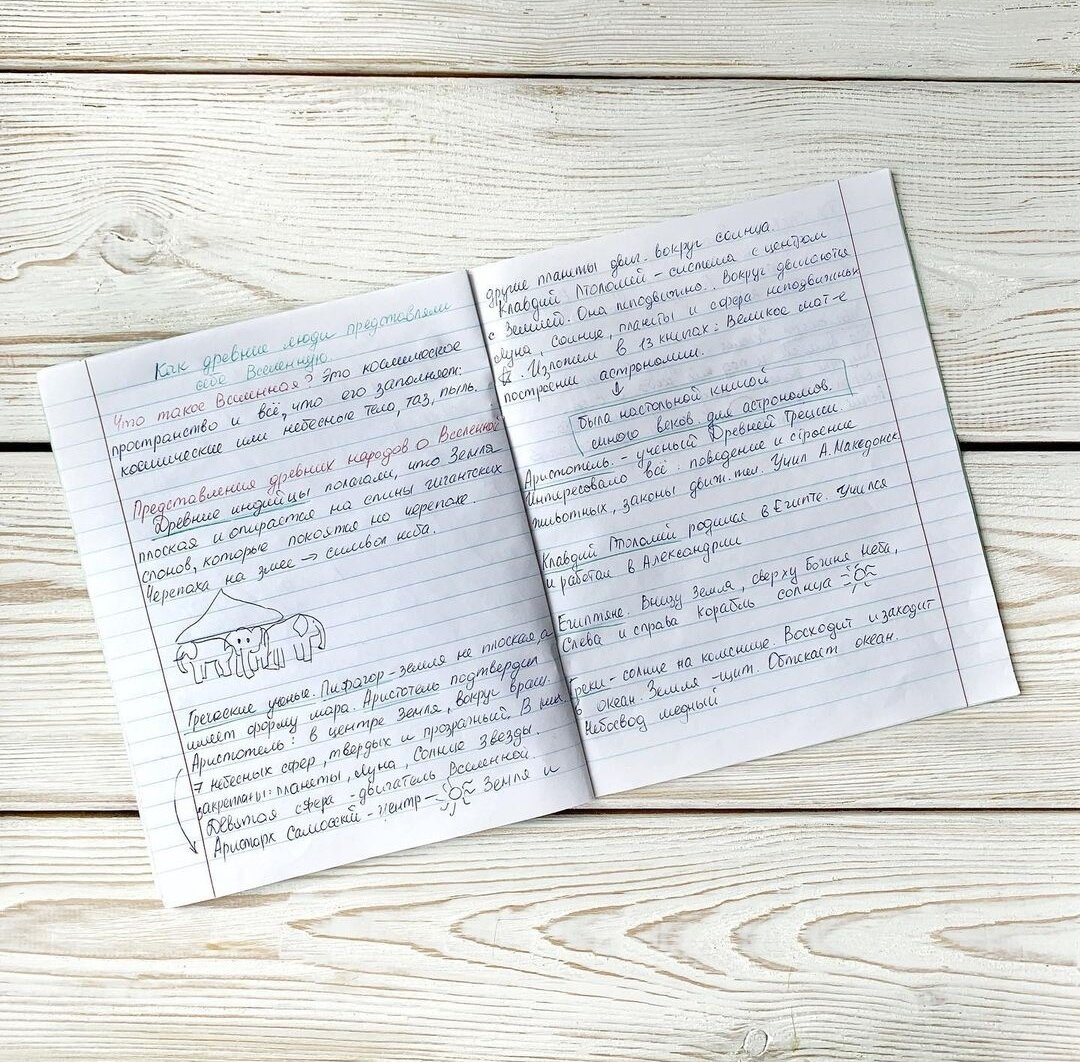 Как древние люди представляли
себе Вселенную.
Что такое Вселенная? Это космическое
пространство и всё, что его заполняет:
космические или небесные тела, газ, пыль.
Представления древних народов о Вселенной
Древние индийцы полагали, что Земля
плоская и опирается на спины гигантских
слонов, которые покоятся на черепахе.
Черепаха на змее → символ неба.
Греческие ученые. Пифагор - земля не плоская, а
имеет форму шара. Аристотель подтвердил
Аристотель: в центре Земля, вокруг вращ.
7 небесных сфер, твердых и прозрачных. В них
закреплены: планеты, Луна, Солнце Звезды.
Девятая сфера - двигатель Вселенной.
Аристарх Самосский - центр - Земля и
другие планеты двиг. вокруг солнца.
Клавдий Птоломей - система с центром
с Землей. Она неподвижно. Вокруг движются
Луна, солнце, планеты и сфера неподвижных
Изложил в 13 книгах: Великое мат-е
построении астрономии.
была настольной книгой
много веков для астрономов.
Аристотель. - ученый Древней Греции.
Интересовало всё: поведение и строение
животных, законы движ. тел. Учил А. Македонск
Клавдий Птоломей родился в Египте. Учился
и работал в Александрии
Египтяне. Внизу Земля, сверху Богиня Неба,
Слева и справа корабль солнца
Греки - солнце на колеснице. Восходит и заходит
в океан. Земля - щит. Обтекает океан.
Небосвод медный